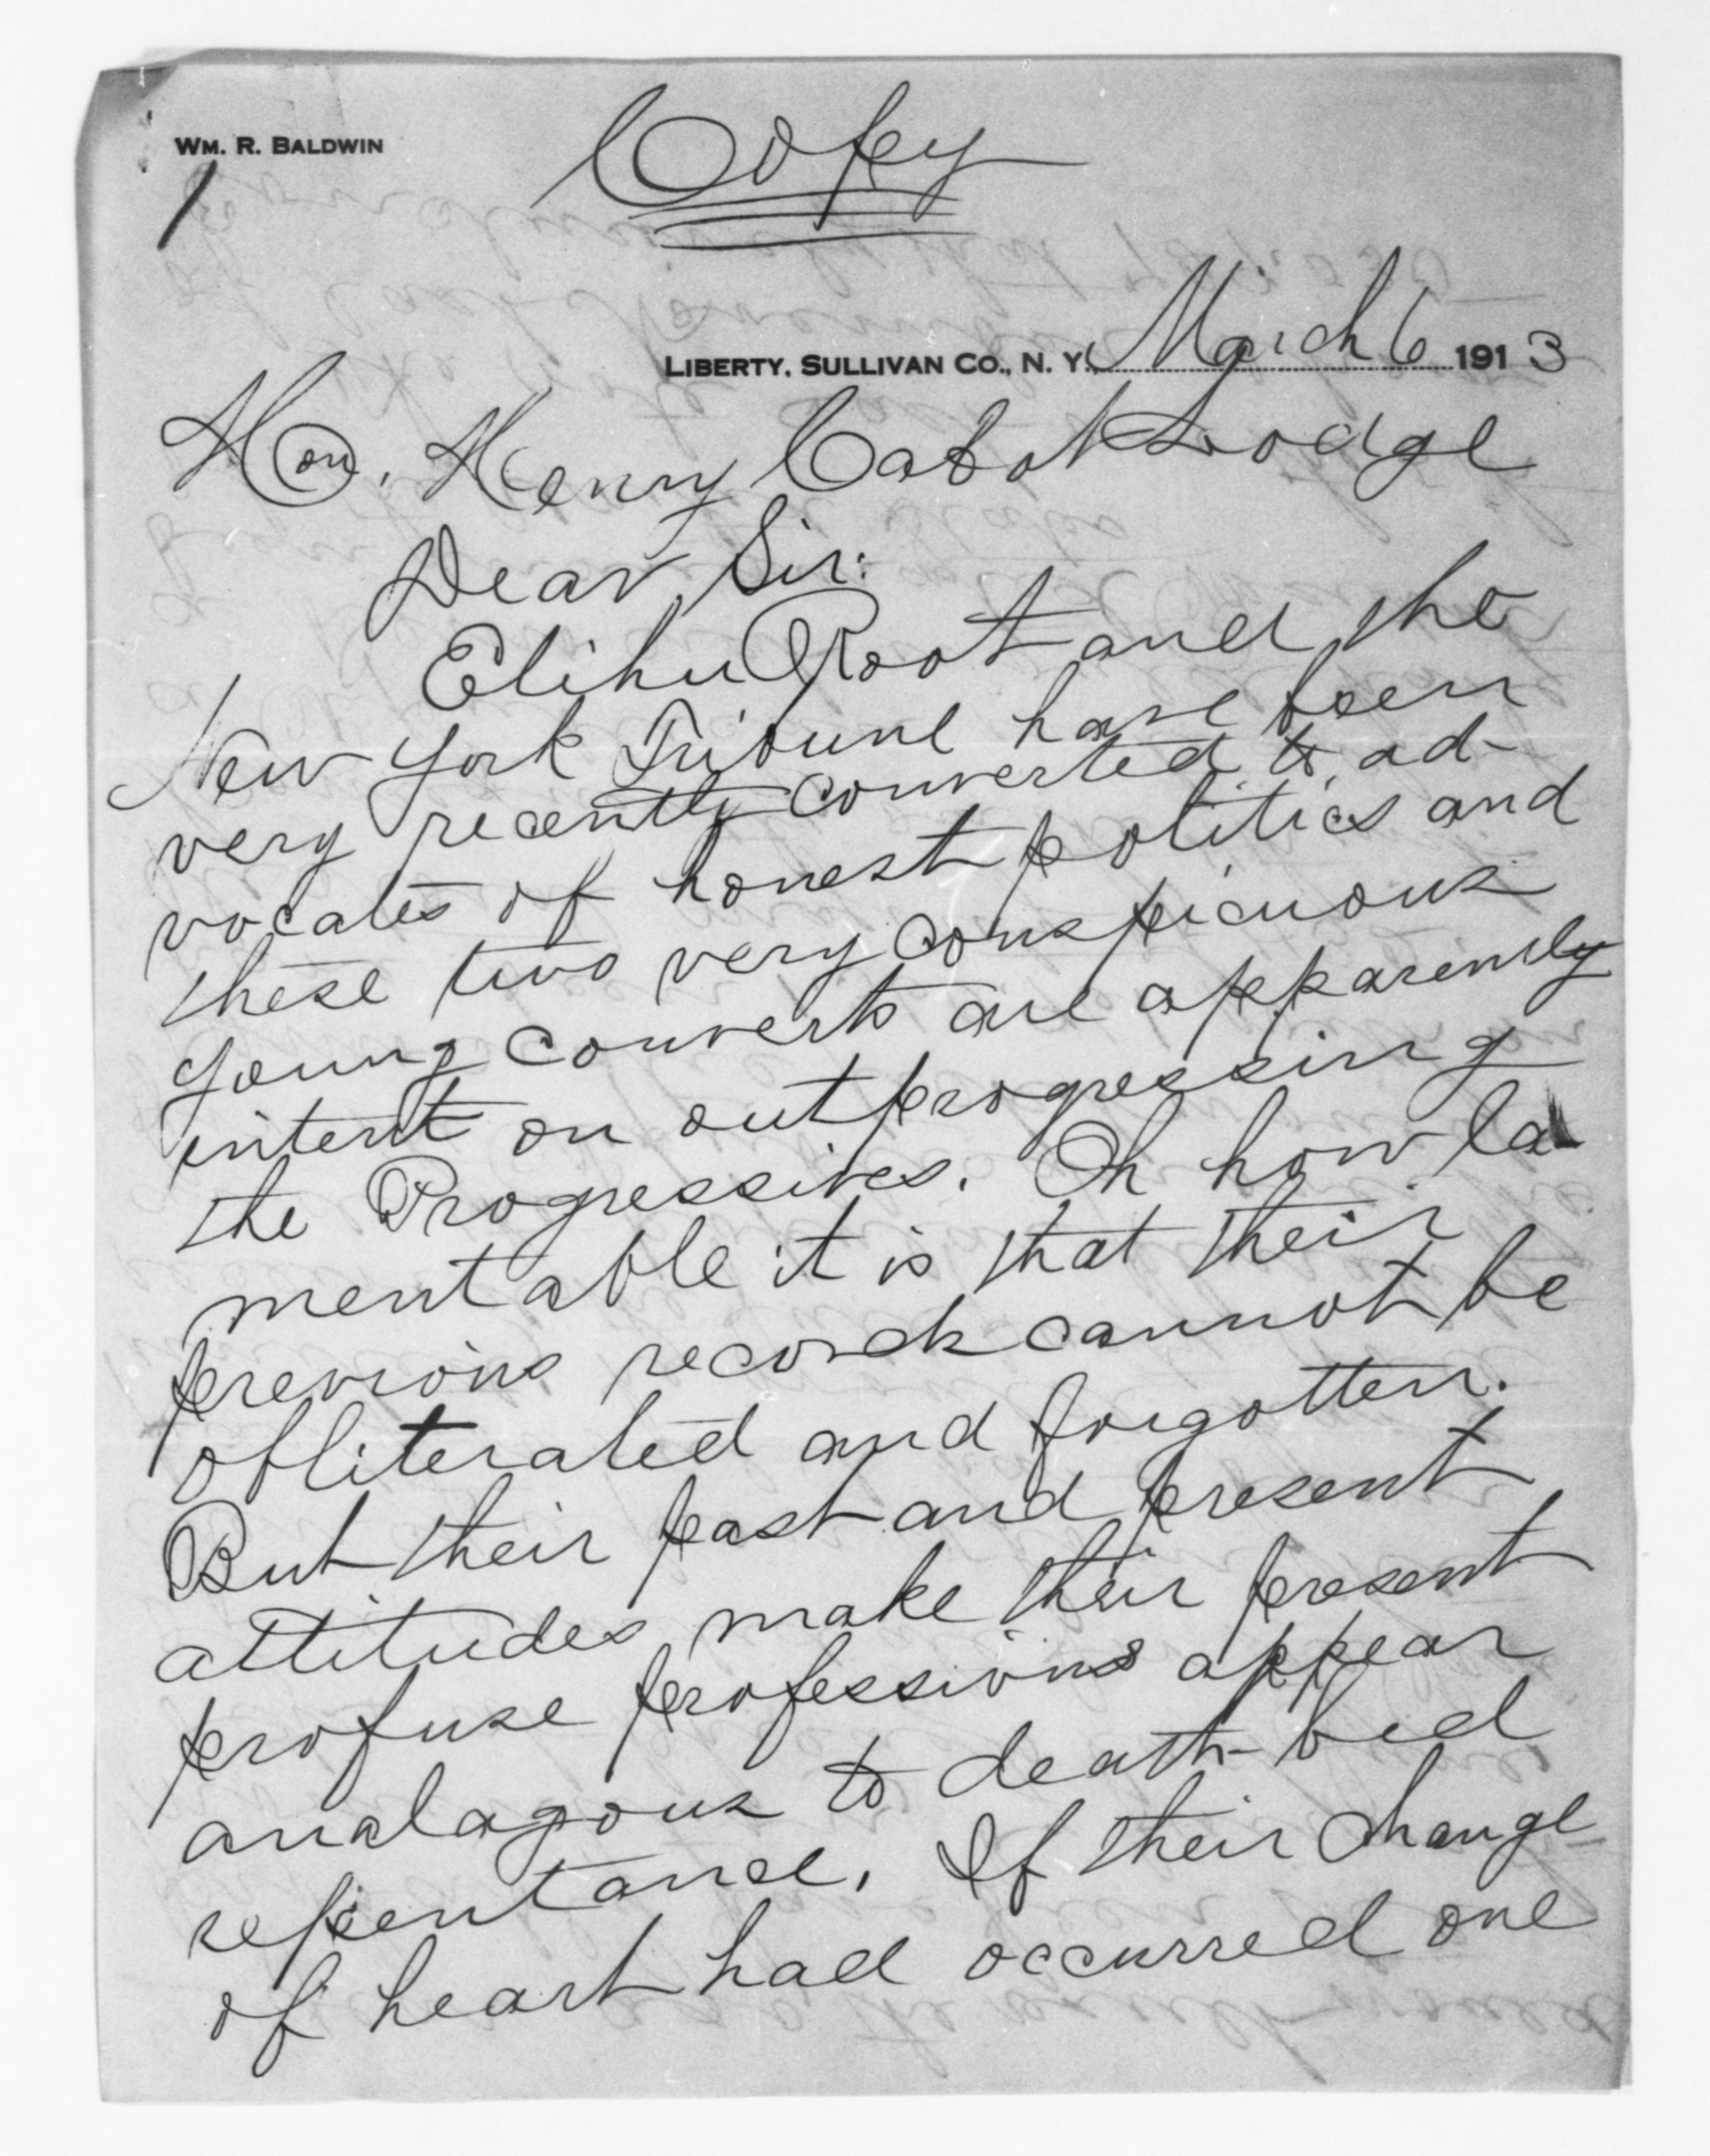 WM. R. BALDWIN
1
Copy
LIBERTY, SULLIVAN CO., N. Y., March 6 1913
Hon. Henry Cabot Lodge
Dear Sir:
Elihu Root and the
New York Tribune have been
very recently converted to ad-
vocates of honest politics and
these two very conspicuous
young converts are apparently
intent on outprogressing
the Progressives. Oh how la-
mentable it is that their
previous records cannot be
obliterated and forgotten.
But their past and present
attitudes make their present
profuse professions appear
analagous to death-bed
repentance. If their change
of heart had occurred one